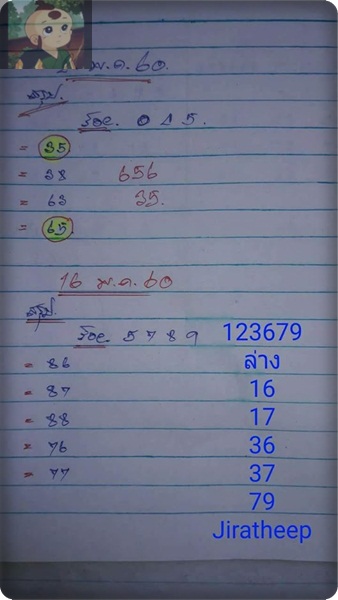 พ.ค. 60.
สรุป.
ร้อย. 0 4 5.
= 35
= 38 656
= 63 35.
= 65
16 พ.ค. 60
สรุป.
ร้อย. 5 7 8 9 123679
ล่าง
= 86 16
= 87
= 88 17
= 76 36
= 77 37
79
Jiratheep